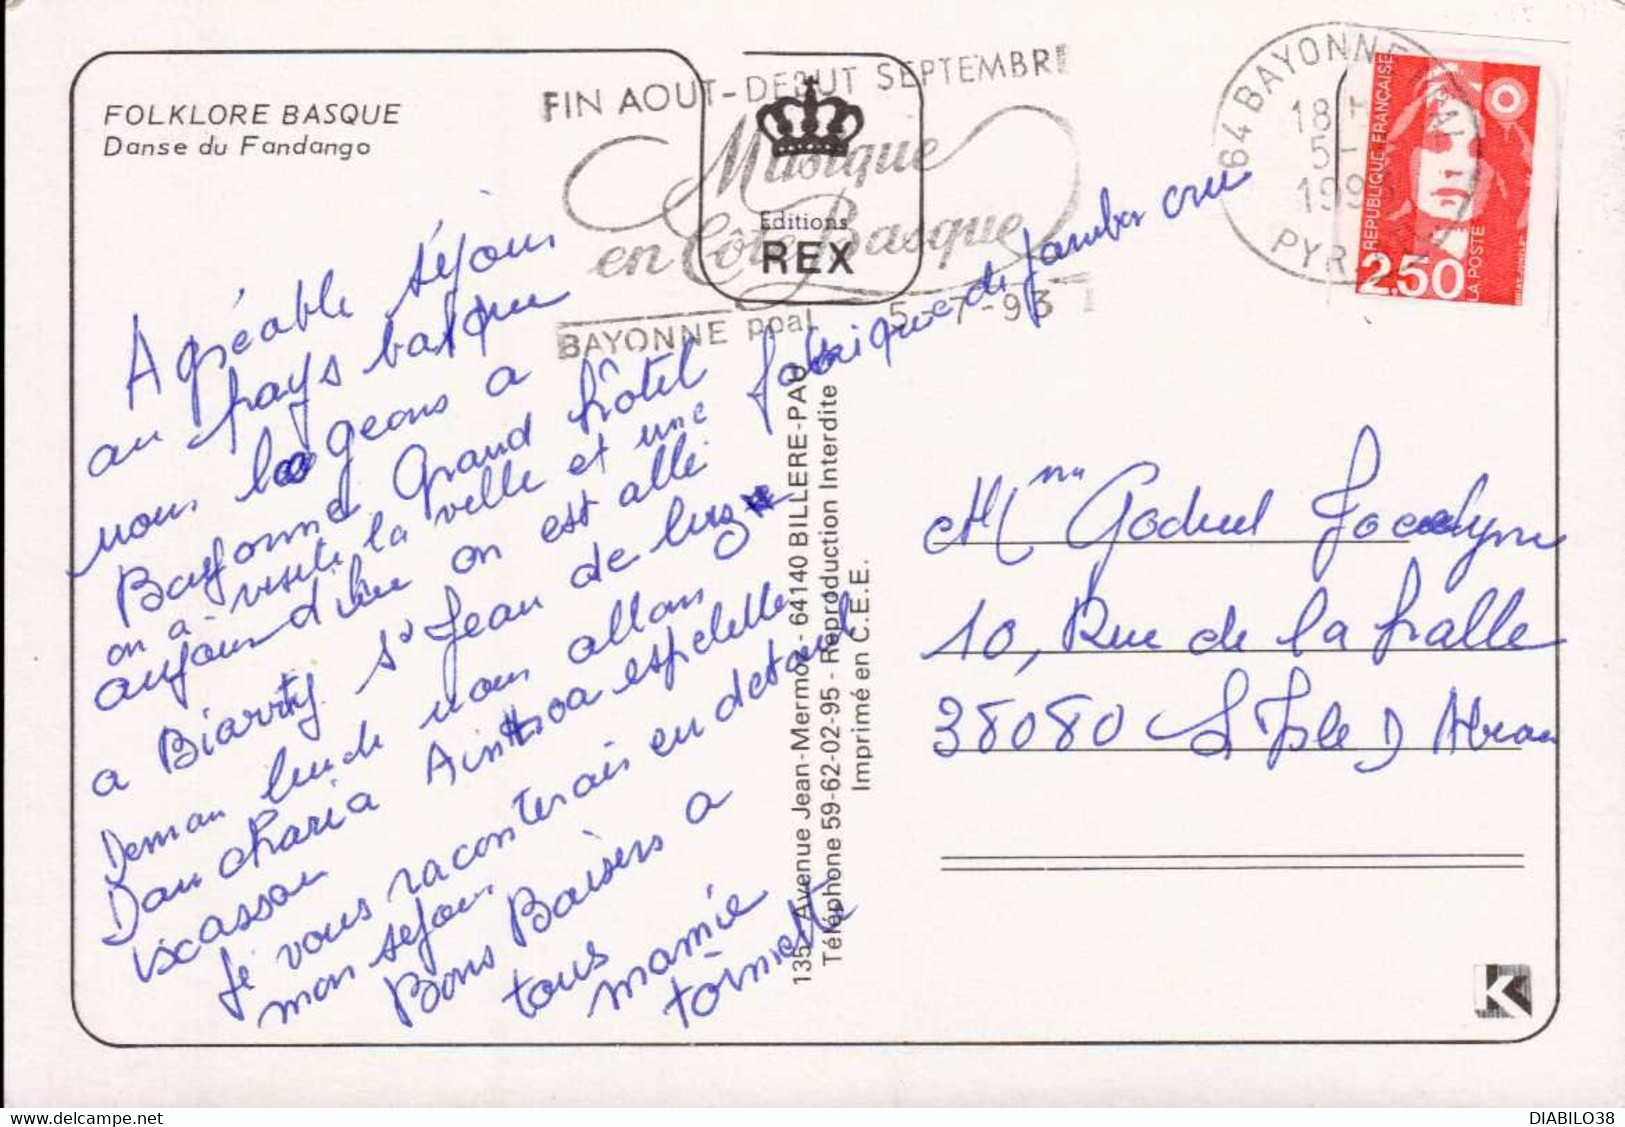 FOLKLORE BASQUE
Danse du Fandango
FIN AOUT-DEBUT SEPTEMBRE
Musique
en Côte Basque
BAYONNE ppal 5-7-93
Editions
REX
64 BAYONNE
18 H
5-7
1993
PYR.
RÉPUBLIQUE FRANÇAISE
2,50
LA POSTE
Agréable séjour
au pays basque
nous logeons a
Bayonne Grand hôtel
on a visite la ville et une fabrique de jambon cru
aujourd'hui on est allé
a Biarritz St Jean de luz
Demain lundi nous allons
Dan charia Ainhoa espelette
ixassou
Je vous raconterais en detail
mon sejour
Bons Baisers a
tous
mamie
toinette
135, Avenue Jean-Mermoz - 64140 BILLERE-PAU
Téléphone 59-62-02-95 - Reproduction Interdite
Imprimé en C.E.E.
Mme Jocelyne
10, Rue de la halle
38080 L Isle D Abeau
K
DIABILO38